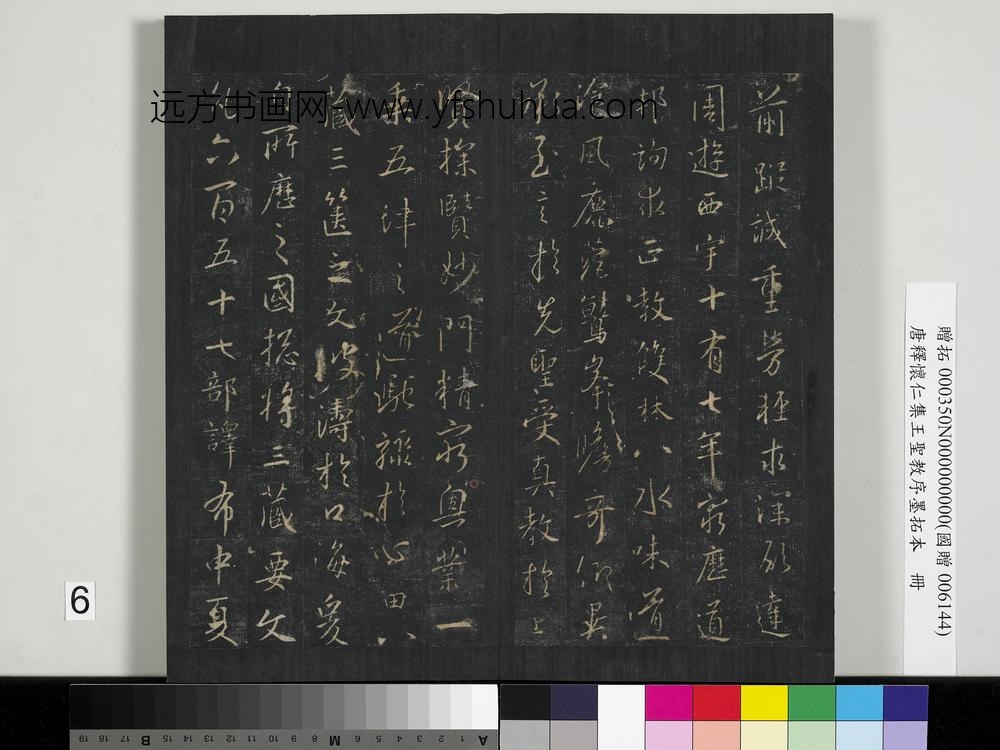 前蹤誠重勞輕求深願達
周遊西宇十有七年窮歷道
邦詢求正教雙林八水味道
飡風鹿菀鷲峯瞻奇仰異
承至言於先聖受真教於上
賢探賾妙門精窮奧業一
乘五律之道馳驟於心田八
藏三篋之文波濤於口海爰
自所歷之國總將三藏要文
凡六百五十七部譯布中夏
远方书画网-www.yfshuhua.com
贈拓 000350N000000000(國贈 006144)
唐釋懷仁集王聖教序墨拓本 冊
6
A 1 2 3 4 5 6 M 8 9 10 11 12 13 14 15 B 17 18 19